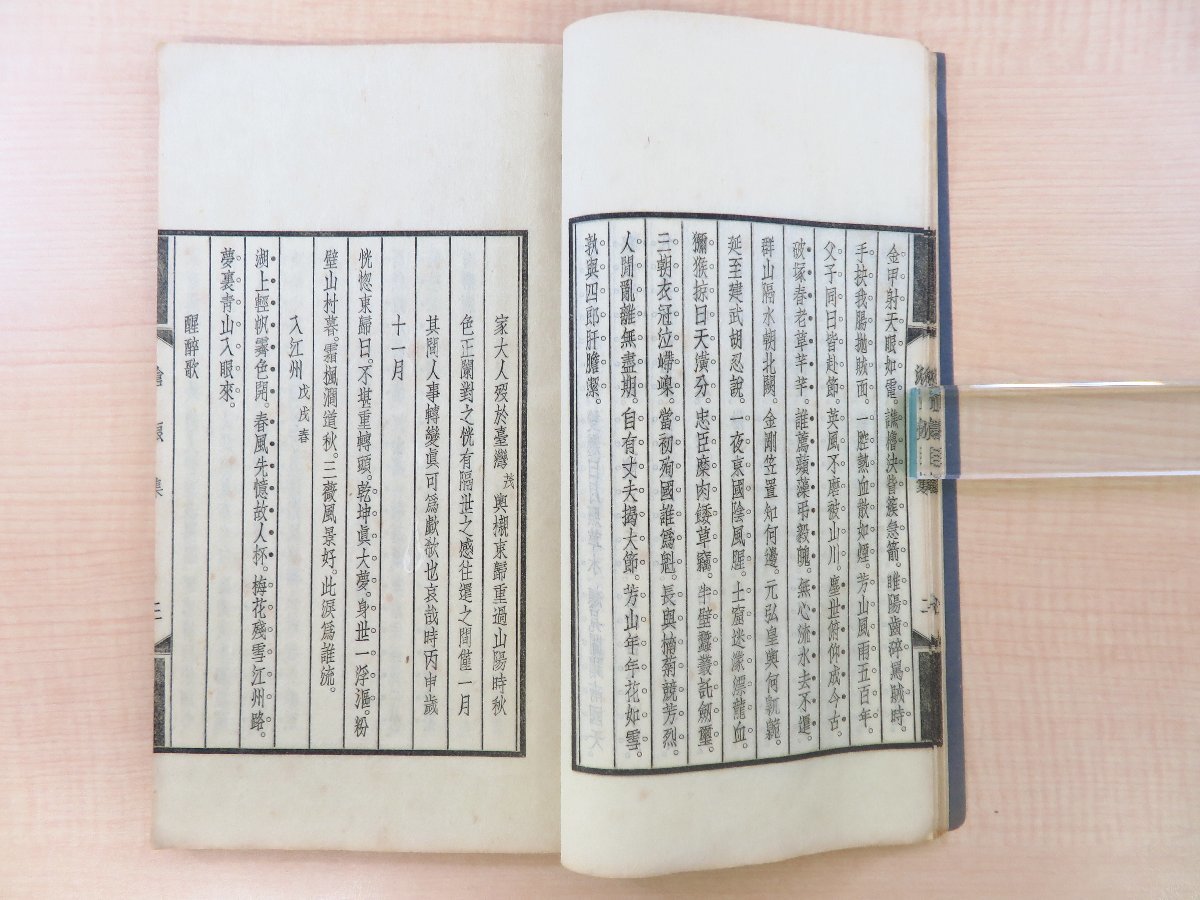 金甲射天眼如電。讙譍決眥簇急箭。睢陽齒碎罵賊時。
手抉我腸拋賊面。一腔熱血散如煙。芳山風雨五百年。
父子同日皆赴節。英風不磨破山川。塵世俯仰成今古。
破塚春老草芊芊。誰薦蘋藻弔毅魄。無心流水去不還。
群山隔水朝北闕。金剛笠置知何邊。元弘皇輿何
延至建武胡忍說。一夜哀國陰風腥。土窟迷濛縹龍血。
獼猴掠日天潢分。忠臣糜肉餧草竊。半壁蠶叢託劍璽。
三朝衣冠泣嶂巙。當初殉國誰為魁。長與楠菊競芳烈。
人間亂離無盡期。自有丈夫揭大節。芳山年年花如雪。
孰與四郎肝膽潔。
家大人歿於臺灣 茂 輿櫬東歸重過山陽時秋
色正闌對之恍有隔世之感往還之間僅一月
其間人事轉變眞可為歔欷也哀哉時丙申歲
十一月
恍惚東歸日。不堪重轉頭。乾坤眞大夢。身世一浮漚。粉
壁山村暮。霜楓澗道秋。三薇風景好。此淚為誰流。
入江州 戊戌春
湖上輕帆霽色開。春風先憶故人杯。梅花殘雪江州路。
夢裏青山入眼來。
醒醉歌
集 三